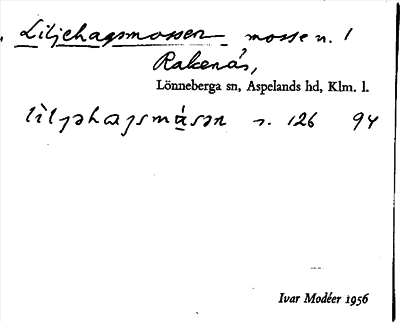 Liljehagsmossen mosse n. 1
Rakenäs,
Lönneberga sn, Aspelands hd, Klm. l.
lìljəhagsmåsən s. 126 94
Ivar Modéer 1956